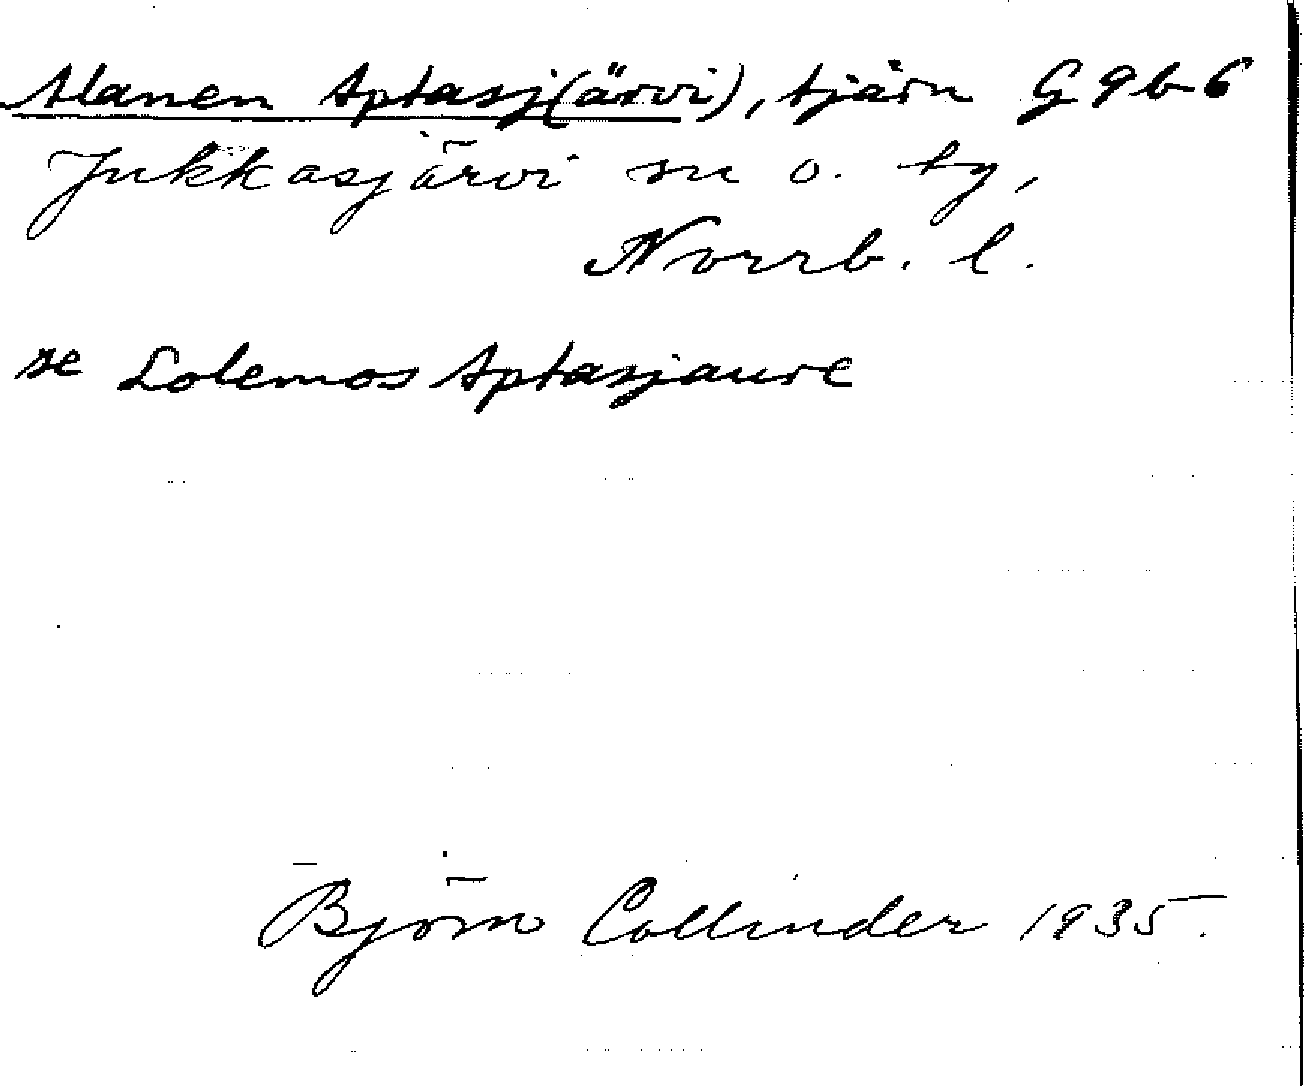 Alanen Aptasj(ärvi), tjärn G9b6
Jukkasjärvi sn o. tg,
Norrb. l.
se Lolemos Aptasjaure
Björn Collinder 1935.